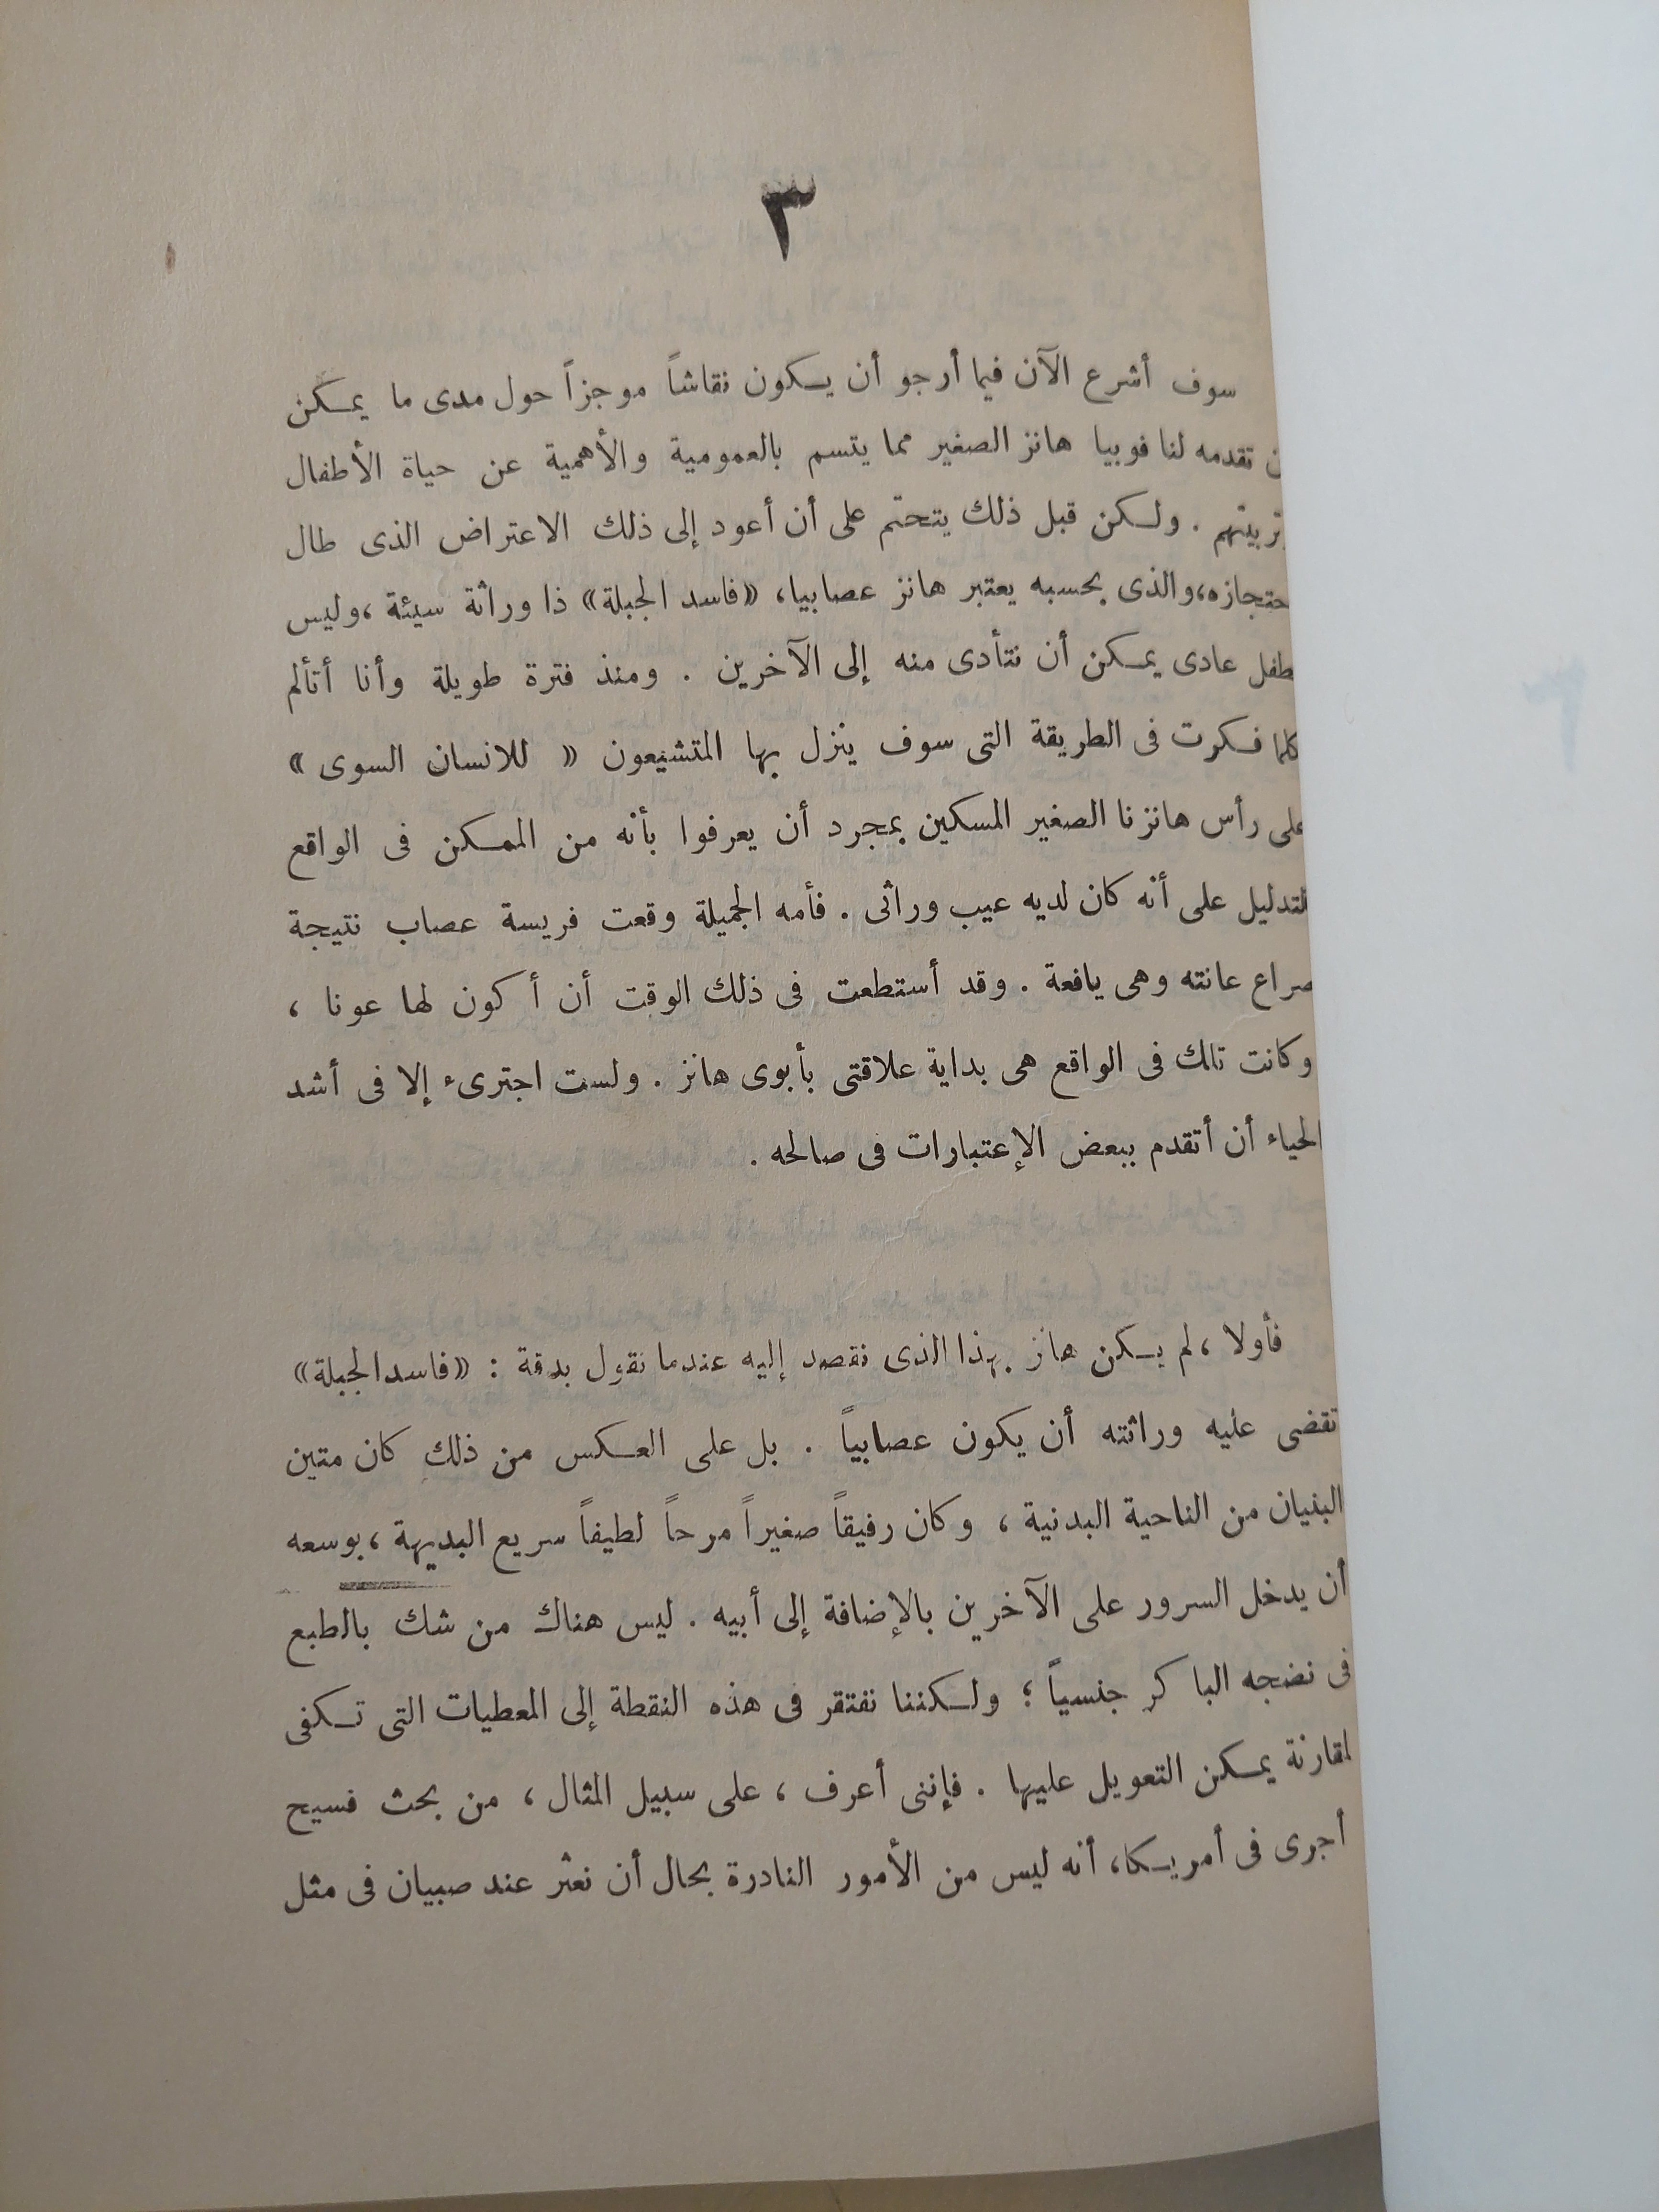 ٣
سوف أشرع الآن فيما أرجو أن يكون نقاشاً موجزاً حول مدى ما يمكن
تقدمه لنا فوبيا هانز الصغير مما يتسم بالعمومية والأهمية عن حياة الأطفال
تربيتهم . ولكن قبل ذلك يتحتم على أن أعود إلى ذلك الاعتراض الذى طال
حتجازه، والذى بحسبه يعتبر هانز عصابيا، «فاسد الجبلة» ذا وراثة سيئة ، وليس
طفل عادى يمكن أن نتأدى منه إلى الآخرين . ومنذ فترة طويلة وأنا أتألم
كلما فكرت فى الطريقة التى سوف ينزل بها المتشيعون « للانسان السوى »
على رأس هانزنا الصغير المسكين بمجرد أن يعرفوا بأنه من الممكن فى الواقع
التدليل على أنه كان لديه عيب وراثى . فأمه الجميلة وقعت فريسة عصاب نتيجة
صراع عانته وهى يافعة . وقد أستطعت فى ذلك الوقت أن أكون لها عونا ،
وكانت تلك فى الواقع هى بداية علاقتى بأبوى هانز . ولست اجترىء إلا فى أشد
الحياء أن أتقدم ببعض الإعتبارات فى صالحه .
فأولا ، لم يكن هانز بهذا الذى نقصد إليه عندما نقول بدقة : «فاسد الجبلة»
تقضى عليه وراثته أن يكون عصابياً . بل على العكس من ذلك كان متين
البنيان من الناحية البدنية ، وكان رفيقاً صغيراً مرحاً لطيفاً سريع البديهة ، بوسعه
أن يدخل السرور على الآخرين بالإضافة إلى أبيه . ليس هناك من شك بالطبع
فى نضجه الباكر جنسياً ؛ ولكننا نفتقر فى هذه النقطة إلى المعطيات التى تكفى
لمقارنة يمكن التعويل عليها . فإننى أعرف ، على سبيل المثال ، من بحث فسيح
أجرى فى أمريكا، أنه ليس من الأمور النادرة بحال أن نعثر عند صبيان فى مثل